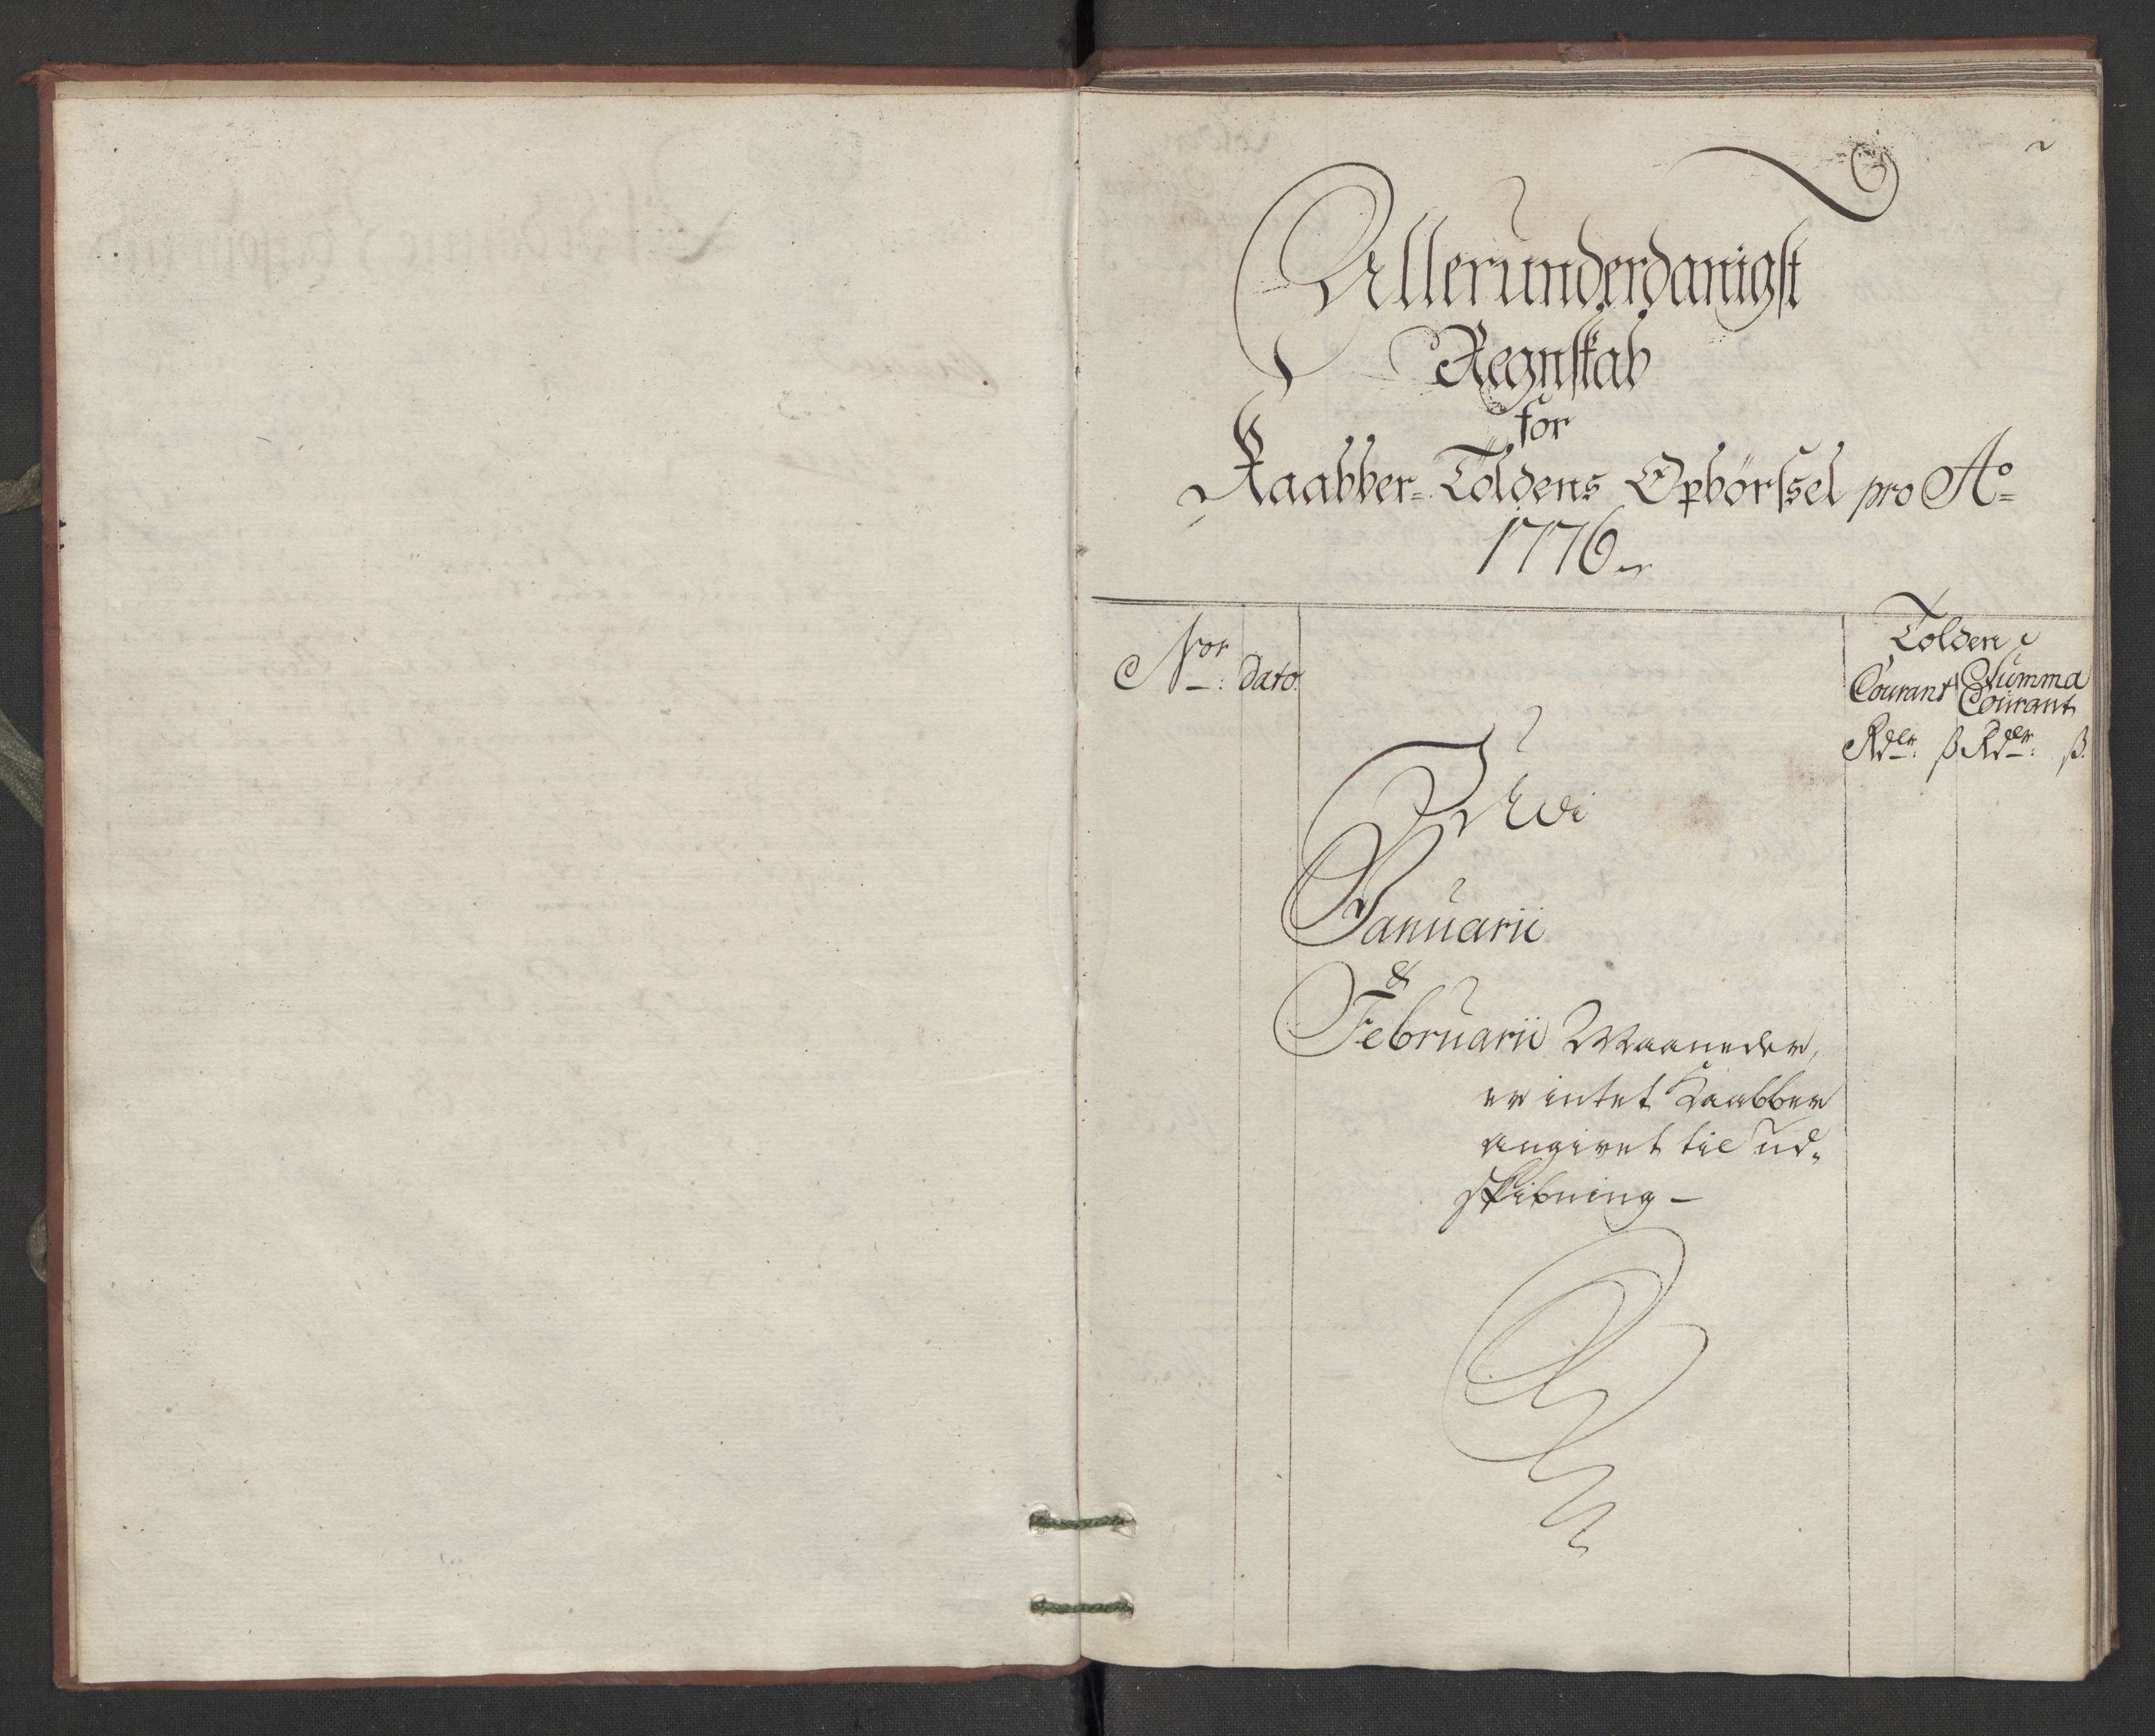 2
Allerunderdanigst
Regnskab
for
Kaabber-Toldens Opbørssel pro Ao=
1776
Nor: Dato: Tolden
Courant Summa
Courant
Rdlr: ß Rdlr: ß.
Udi
Januarii
&
Februarii Maaneder,
er intet Kaabber
angivet til Ud=
skibning –